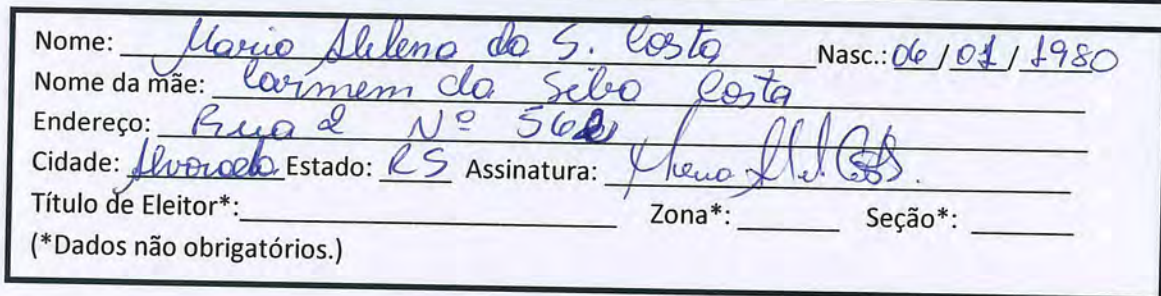 Nome: Maria Helena da S. Costa Nasc.: 06/01/1980
Nome da mãe: Carmem da Silva Costa
Endereço: Rua 2 Nº 562
Cidade: Alvorada Estado: RS Assinatura:
Título de Eleitor*: Zona*: Seção*:
(*Dados não obrigatórios.)